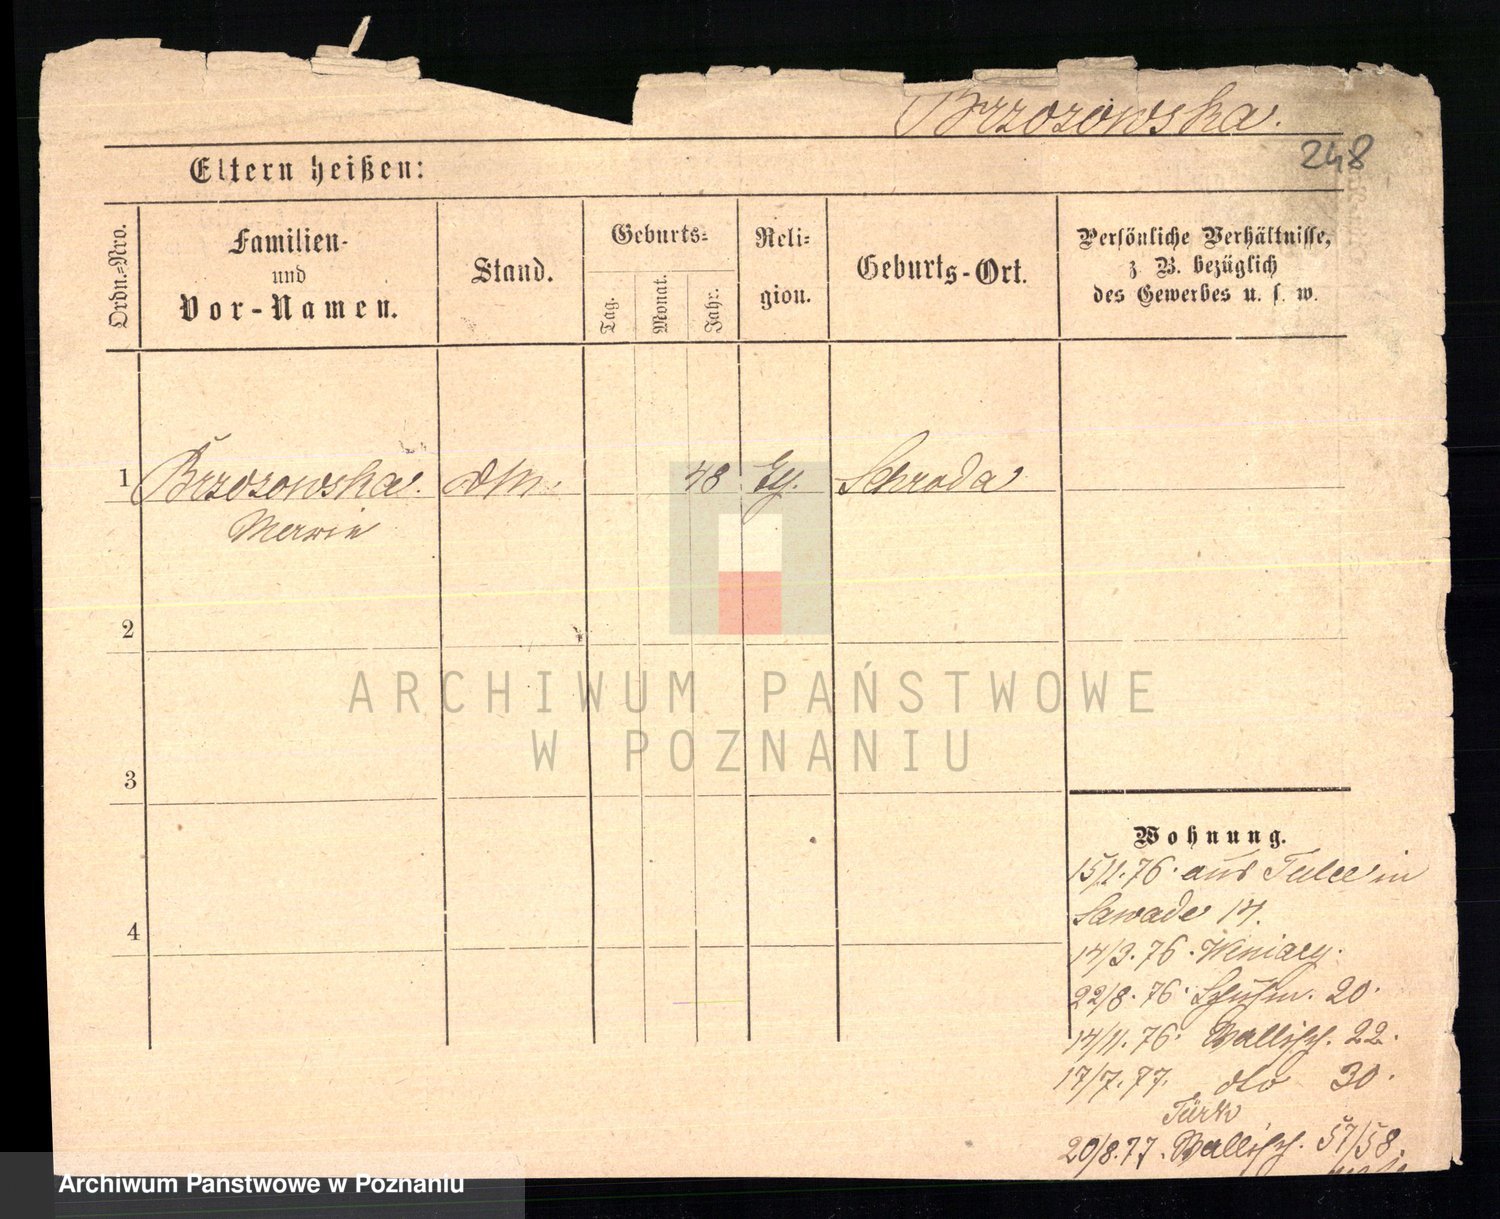 Brzozowska.
248
Eltern heißen:
Ordn.=Nro.
Familien-
und
Vor-Namen.
Stand.
Geburts=
Tag.
Monat.
Jahr.
Reli=
gion.
Geburts-Ort.
Persönliche Verhältnisse,
z. B. bezüglich
des Gewerbes u. s. w.
1 Brzozowska. 48 Schroda
Marie
2
3
4
ARCHIWUM PAŃSTWOWE
W POZNANIU
Wohnung.
15/1.76. aus Tulce in
Sawade 14.
14/3.76. Weniary.
22/8.76. Schuhm. 20.
14/11.76. Wallisch. 22.
17/7.77. dto 30.
Türk
20/8.77. Wallisch. 57/58.
Archiwum Państwowe w Poznaniu